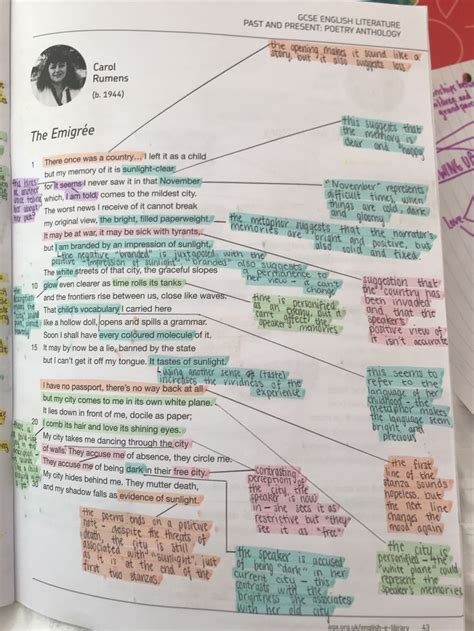 GCSE ENGLISH LITERATURE
PAST AND PRESENT: POETRY ANTHOLOGY
Carol
Rumens
(b. 1944)
the opening makes it sound like a
story, but it also suggests loss
The Emigrée
1 There once was a country… I left it as a child
but my memory of it is sunlight-clear
for it seems I never saw it in that November
which, I am told, comes to the mildest city.
The worst news I receive of it cannot break
my original view, the bright, filled paperweight.
It may be at war, it may be sick with tyrants,
but I am branded by an impression of sunlight.
The white streets of that city, the graceful slopes
10 glow even clearer as time rolls its tanks
and the frontiers rise between us, close like waves.
That child's vocabulary I carried here
like a hollow doll, opens and spills a grammar.
Soon I shall have every coloured molecule of it.
15 It may by now be a lie, banned by the state
but I can't get it off my tongue. It tastes of sunlight.
I have no passport, there's no way back at all
but my city comes to me in its own white plane.
It lies down in front of me, docile as paper;
20 I comb its hair and love its shining eyes.
My city takes me dancing through the city
of walls. They accuse me of absence, they circle me.
They accuse me of being dark in their free city.
My city hides behind me. They mutter death,
and my shadow falls as evidence of sunlight.
this suggests that
the memory is
clear and happy
"November" represents
difficult times, when
things are cold, dark
and gloomy
the metaphor suggests that the narrator's
memories are bright and positive, but
also solid and fixed
the negative "branded" is juxtaposed with the
positive "impression of sunlight"
"branded" also suggests
a permanence to
her view - it can't
change
suggestion that
the country has
been invaded
and that the
speaker's
positive view of
it isn't accurate
time is personified
as an enemy, but it
can't affect the
speaker's memories
this seems to
refer to the
language of her
childhood - the
metaphor makes
the language seem
bright and
precious
using another sense (taste)
increases the vividness of the
experience
the first
line of the
stanza sounds
hopeless but
the next line
changes the
mood again
contrasting
perceptions of
the city, the
speaker is now
in - she sees it as
restrictive but "they"
see it as "free"
the city is
personified - the
"white plane" could
represent the
speaker's memories
the poem ends on a positive
note - despite the threats of
death, the city is still
associated with "sunlight", just
as it is at the end of the
first two stanzas
the speaker is accused
of being "dark" in her
current city - this
contrasts with the
brightness she associates
with her old city
aqa.org.uk/english-e-library 43